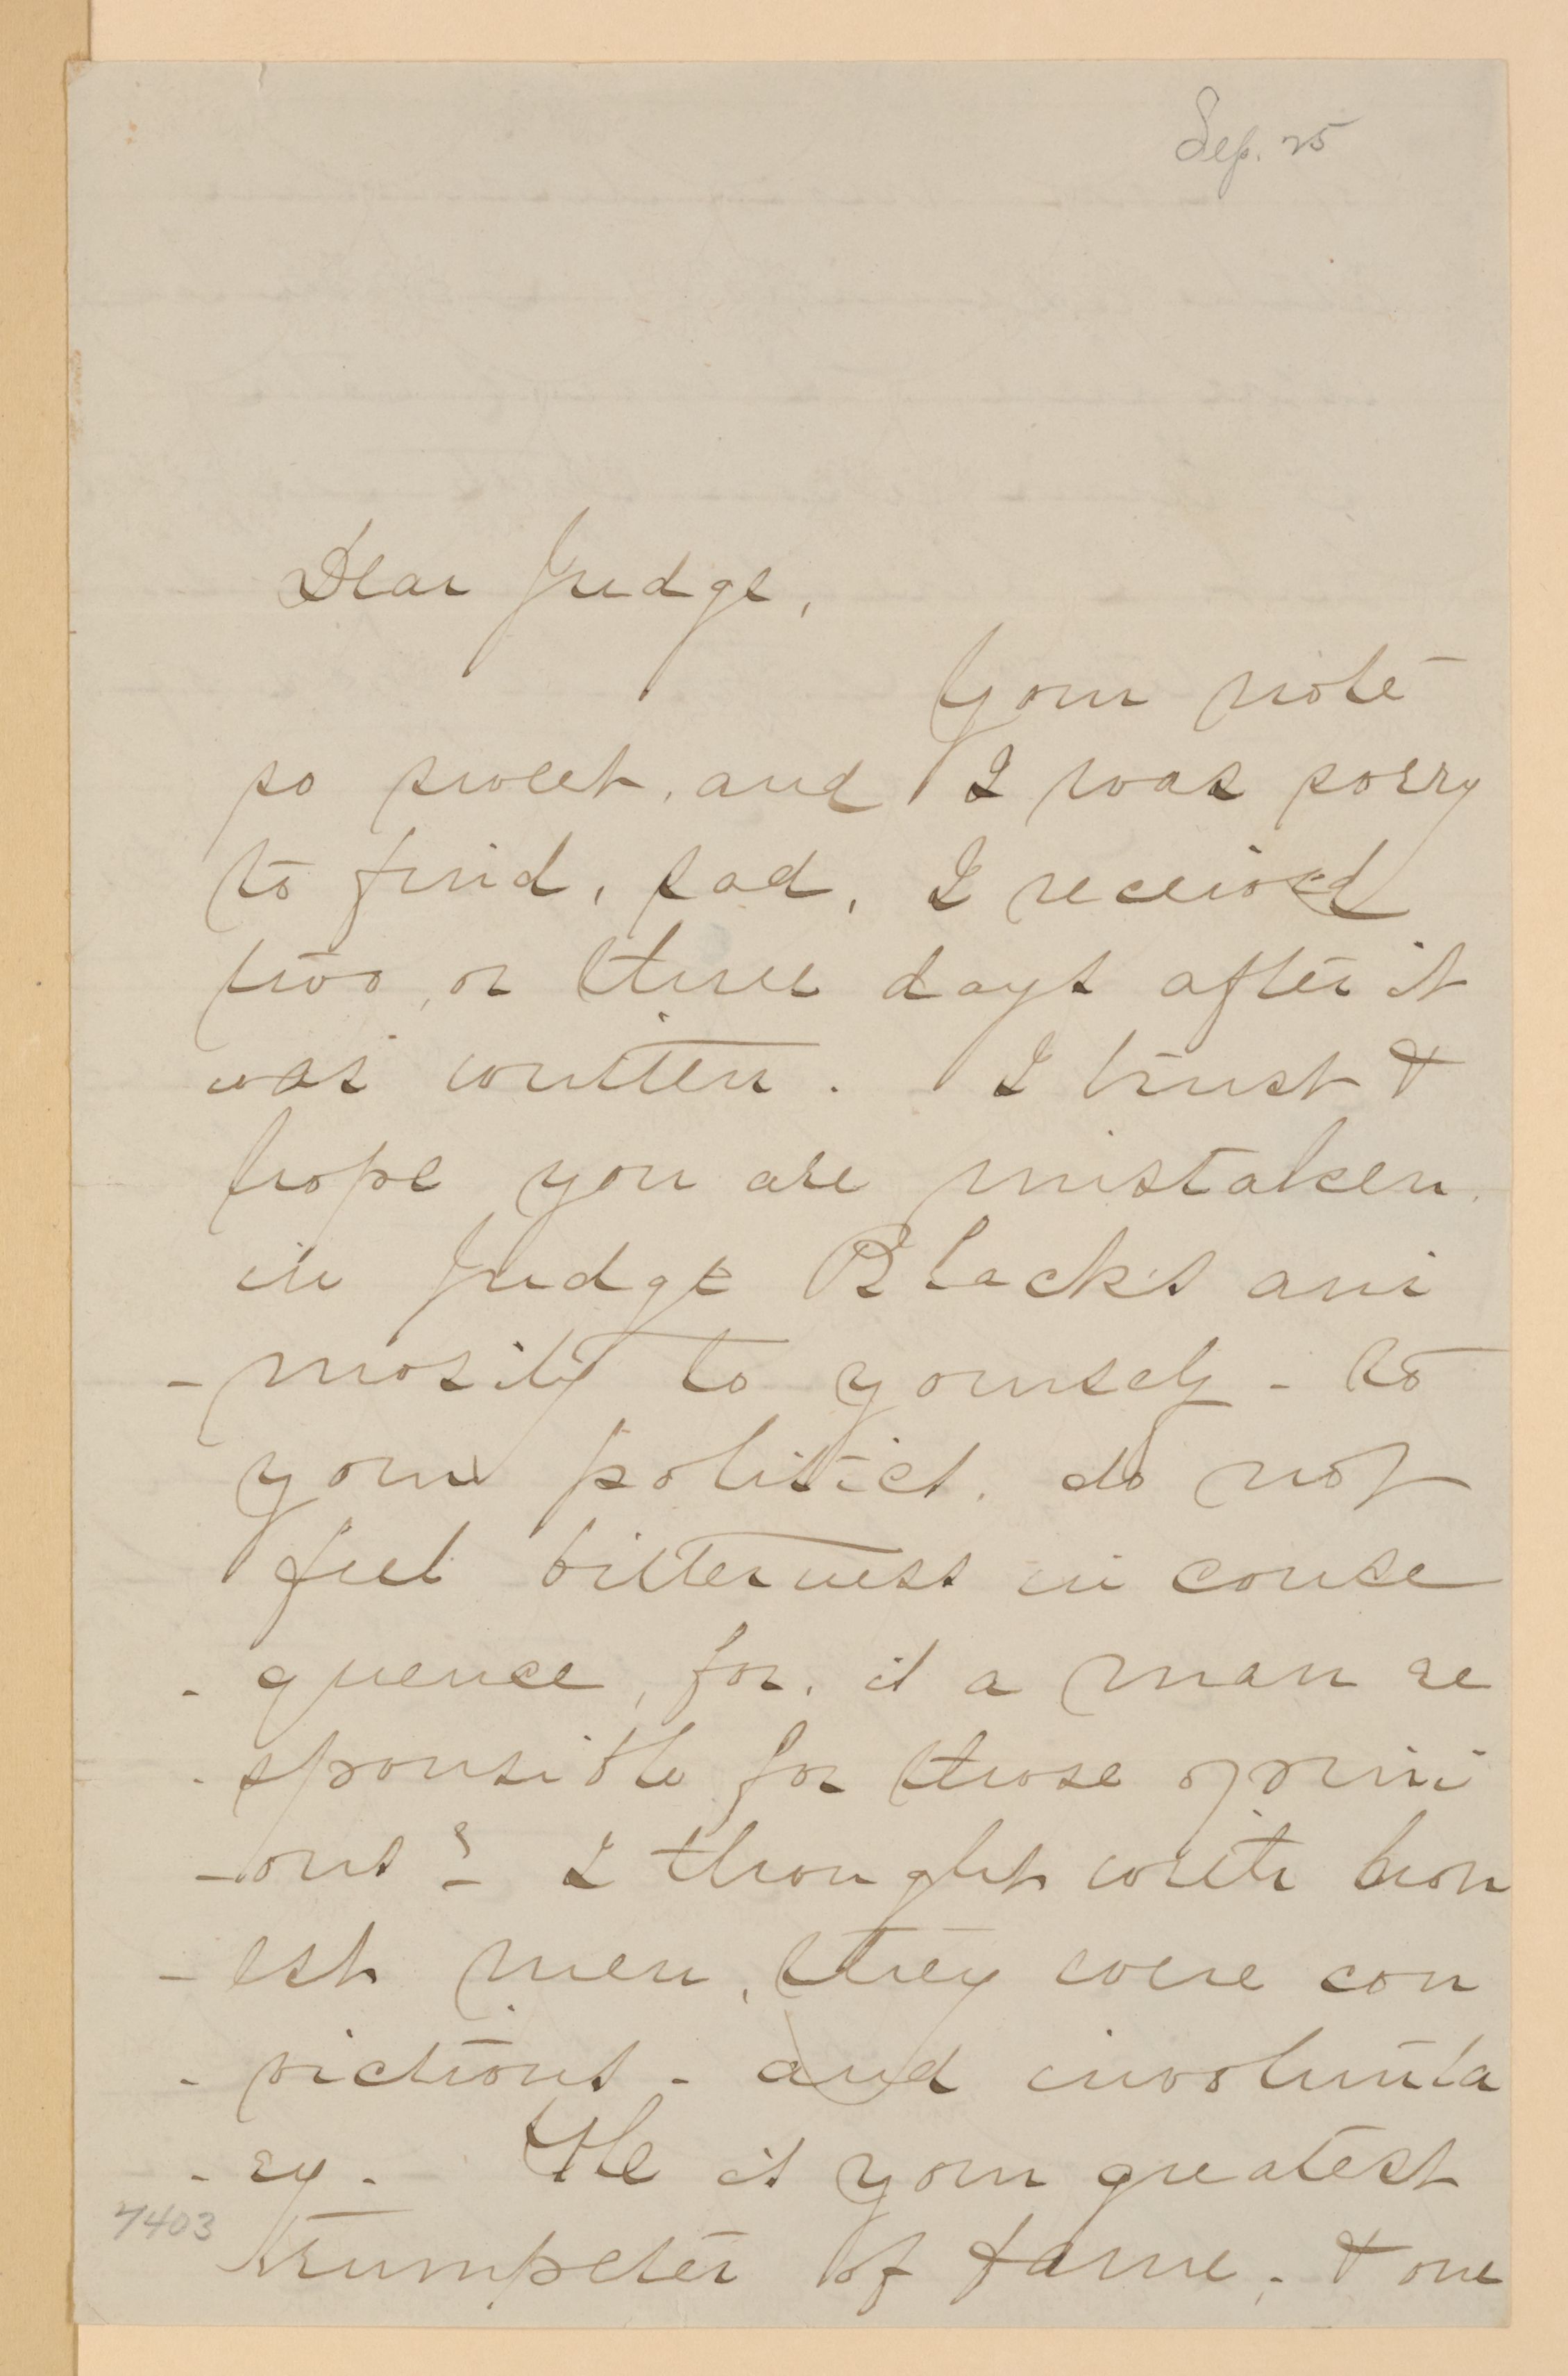 Sep. 25
Dear Judge,
Your note
so sweet, and I was sorry
to find, sad, I received
two, or three days after it
was written. I trust &
hope you are mistaken
in Judge Black's ani
-mosity to yourself - to
your politics. do not
feel bitterness in conse
-quence, for, is a man re
-sponsible for those opini
-ons? - I thought with hon
-est men, they were con
-victions - and involunta
-ry. He is your greatest
7403
trumpeter of fame, & one